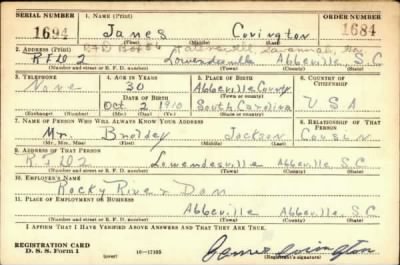 SERIAL NUMBER 1. NAME (Print) ORDER NUMBER
1694 James Covington 1684
(First) (Middle) (Last)
2. ADDRESS (Print) Savannah, Ga
R F D 2 Abbeville, S.C.
(Number and street or R. F. D. number) (Town) (County) (State)
3. TELEPHONE 4. AGE IN YEARS 5. PLACE OF BIRTH 6. COUNTRY OF CITIZENSHIP
None 30 Abbeville County
DATE OF BIRTH (Town or county)
Oct 2 1910 South Carolina U S A
(Exchange) (Number) (Mo.) (Day) (Yr.) (State or country)
7. NAME OF PERSON WHO WILL ALWAYS KNOW YOUR ADDRESS 8. RELATIONSHIP OF THAT PERSON
Mr. Jackson Cousin
(Mr., Mrs., Miss) (First) (Middle) (Last)
9. ADDRESS OF THAT PERSON
R F D 2 Lowendesville Abbeville S.C.
(Number and street or R. F. D. number) (Town) (County) (State)
10. EMPLOYER'S NAME
Rocky River Dam
11. PLACE OF EMPLOYMENT OR BUSINESS
Abbeville Abbeville S.C.
(Number and street or R. F. D. number) (Town) (County) (State)
I AFFIRM THAT I HAVE VERIFIED ABOVE ANSWERS AND THAT THEY ARE TRUE.
REGISTRATION CARD
D. S. S. Form 1 (over) 16—17105 James Covington
(Registrant's signature)